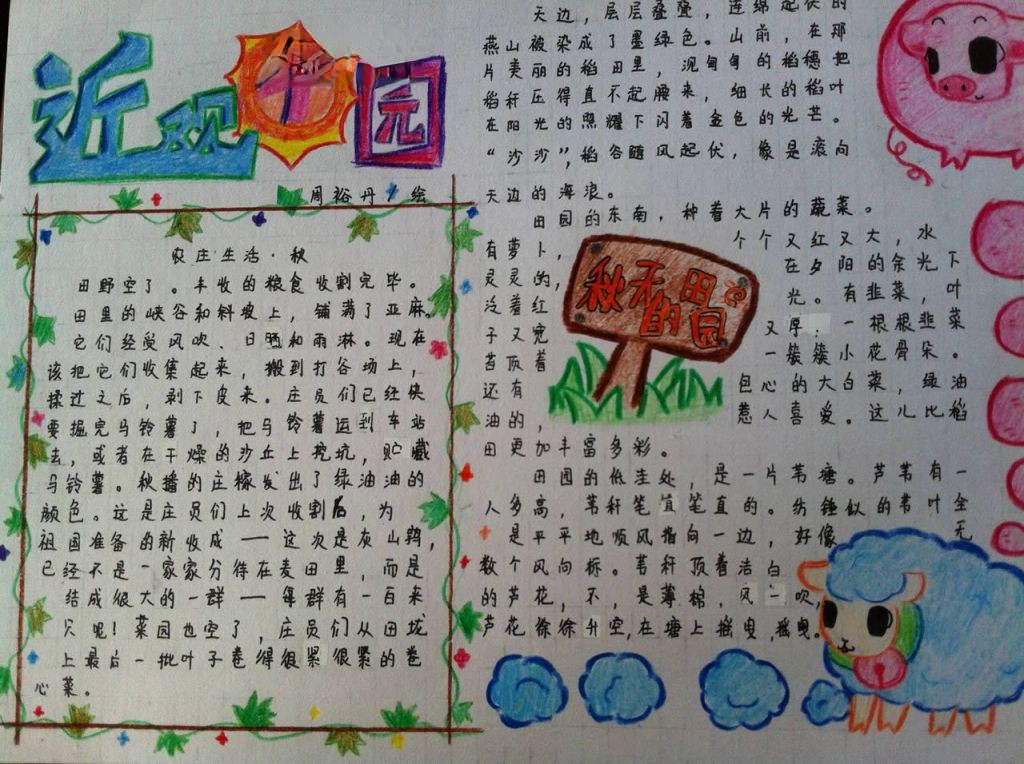 近观田园
周裕丹 绘
农庄生活·秋
田野空了。丰收的粮食收割完毕。
田里的峡谷和斜坡上，铺满了亚麻。
它们经受风吹、日晒和雨淋。现在
该把它们收集起来，搬到打谷场上，
揉过之后，剥下皮来。庄员们已经快
要掘完马铃薯了，把马铃薯运到车站
去，或者在干燥的沙丘上挖坑，贮藏
马铃薯。秋播的庄稼发出了绿油油的
颜色。这是庄员们上次收割后，为
祖国准备的新收成——这次是灰山鹑，
已经不是一家家分待在麦田里，而是
结成很大的一群——每群有一百来
只呢！菜园也空了，庄员们从田垅
上最后一批叶子卷得很紧很紧的卷
心菜。
天边，层层叠叠，连绵起伏的
燕山被染成了墨绿色。山前，在那
片美丽的稻田里，沉甸甸的稻穗把
稻秆压得直不起腰来，细长的稻叶
在阳光的照耀下闪着金色的光芒。
“沙沙”，稻谷随风起伏，像是滚向
天边的海浪。
田园的东南，种着大片的蔬菜。
有萝卜，个个又红又大，水
灵灵的，在夕阳的余光下
泛着红光。有韭菜，叶
子又宽又厚，一根根韭菜
苔顶着一簇簇小花骨朵。
还有包心的大白菜，绿油
油的，惹人喜爱。这儿比稻
田更加丰富多彩。
秋天的田园
田园的低洼处，是一片苇塘。芦苇有一
人多高，苇秆笔直笔直的。纺锤似的苇叶全
是平平地顺风指向一边，好像无
数个风向标。苇秆顶着洁白
的芦花，不，是薄棉，风一吹，
芦花徐徐升空，在塘上摇曳，摇曳。